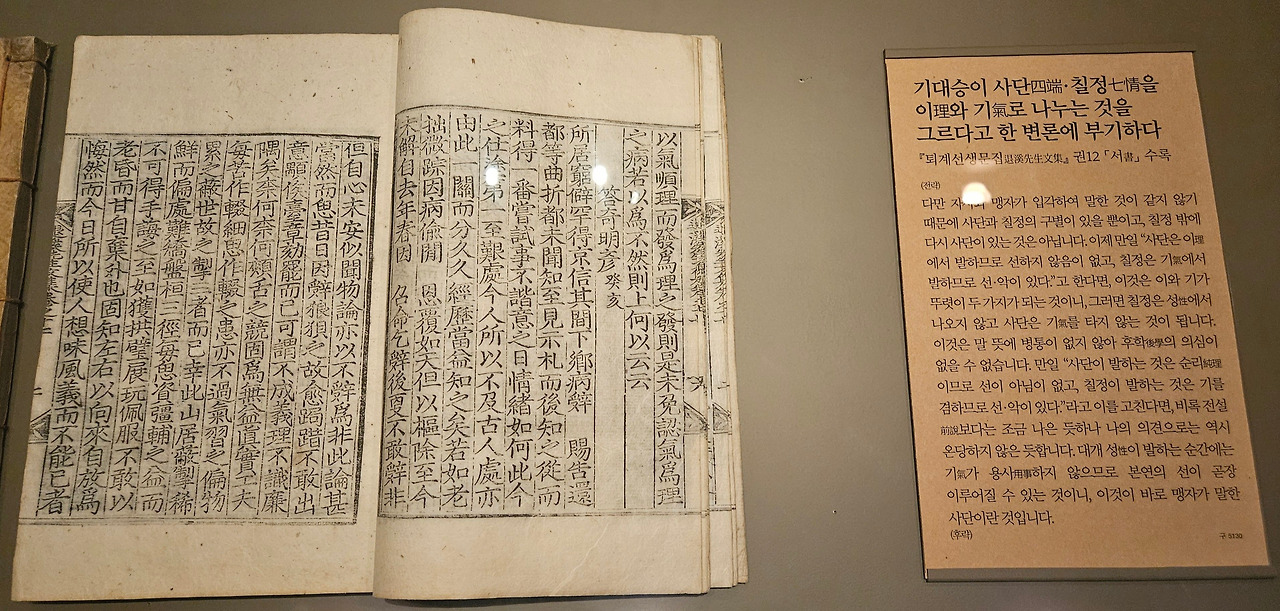 以氣順理而發爲理之發則是未免認氣爲理
之病若以爲不然則上何以云云
答奇明彦 癸亥
所居窮僻罕得京信其間下鄕病辭 賜告還
都等曲折都未聞知至見示札而後知之從而
料得一番嘗試事不諧意之日情緖如何此今
之仕塗第一至艱處今人所以不及古人處亦
由此一關而分久久經歷當益知之矣若如老
拙微踪因病偸閒 恩覆如天但以樞除至今
未解自去年春因 召命乞辭後更不敢辭非
但自心未安似聞物論亦以不辭爲非此論甚
當然而思昔日因辭狼狽之故愈跼蹐不敢出
意顒俟臺章劾罷而已可謂不成義理不識廉
隅矣柰何柰何頰舌之競固爲無益眞實工夫
每苦作輟細思作輟之患亦不過氣習之偏物
累之蔽世故之掣三者而已幸此山居蔽掣稀
鮮而偏處難矯盤桓三徑每思資彊輔之益而
不可得手誨之至如獲拱璧展玩佩服不敢以
老昏而甘自棄外也固知左右以向來自放爲
悔然而今日所以使人想味風義而不能已者
기대승이 사단四端·칠정七情을
이理와 기氣로 나누는 것을
그르다고 한 변론에 부기하다
『퇴계선생문집退溪先生文集』 권12 「서書」 수록
(전략)
다만 자사와 맹자가 입각하여 말한 것이 같지 않기
때문에 사단과 칠정의 구별이 있을 뿐이고, 칠정 밖에
다시 사단이 있는 것은 아닙니다. 이제 만일 “사단은 이理
에서 발하므로 선하지 않음이 없고, 칠정은 기氣에서
발하므로 선·악이 있다.”고 한다면, 이것은 이와 기가
뚜렷이 두 가지가 되는 것이니, 그러면 칠정은 성性에서
나오지 않고 사단은 기氣를 타지 않는 것이 됩니다.
이것은 말 뜻에 병통이 없지 않아 후학後學의 의심이
없을 수 없습니다. 만일 “사단이 발하는 것은 순리純理
이므로 선이 아님이 없고, 칠정이 발하는 것은 기를
겸하므로 선·악이 있다.”라고 이를 고친다면, 비록 전설
前說보다는 조금 나은 듯하나 나의 의견으로는 역시
온당하지 않은 듯합니다. 대개 성性이 발하는 순간에는
기氣가 용사用事하지 않으므로 본연의 선이 곧장
이루어질 수 있는 것이니, 이것이 바로 맹자가 말한
사단이란 것입니다.
(후략)
구 5130